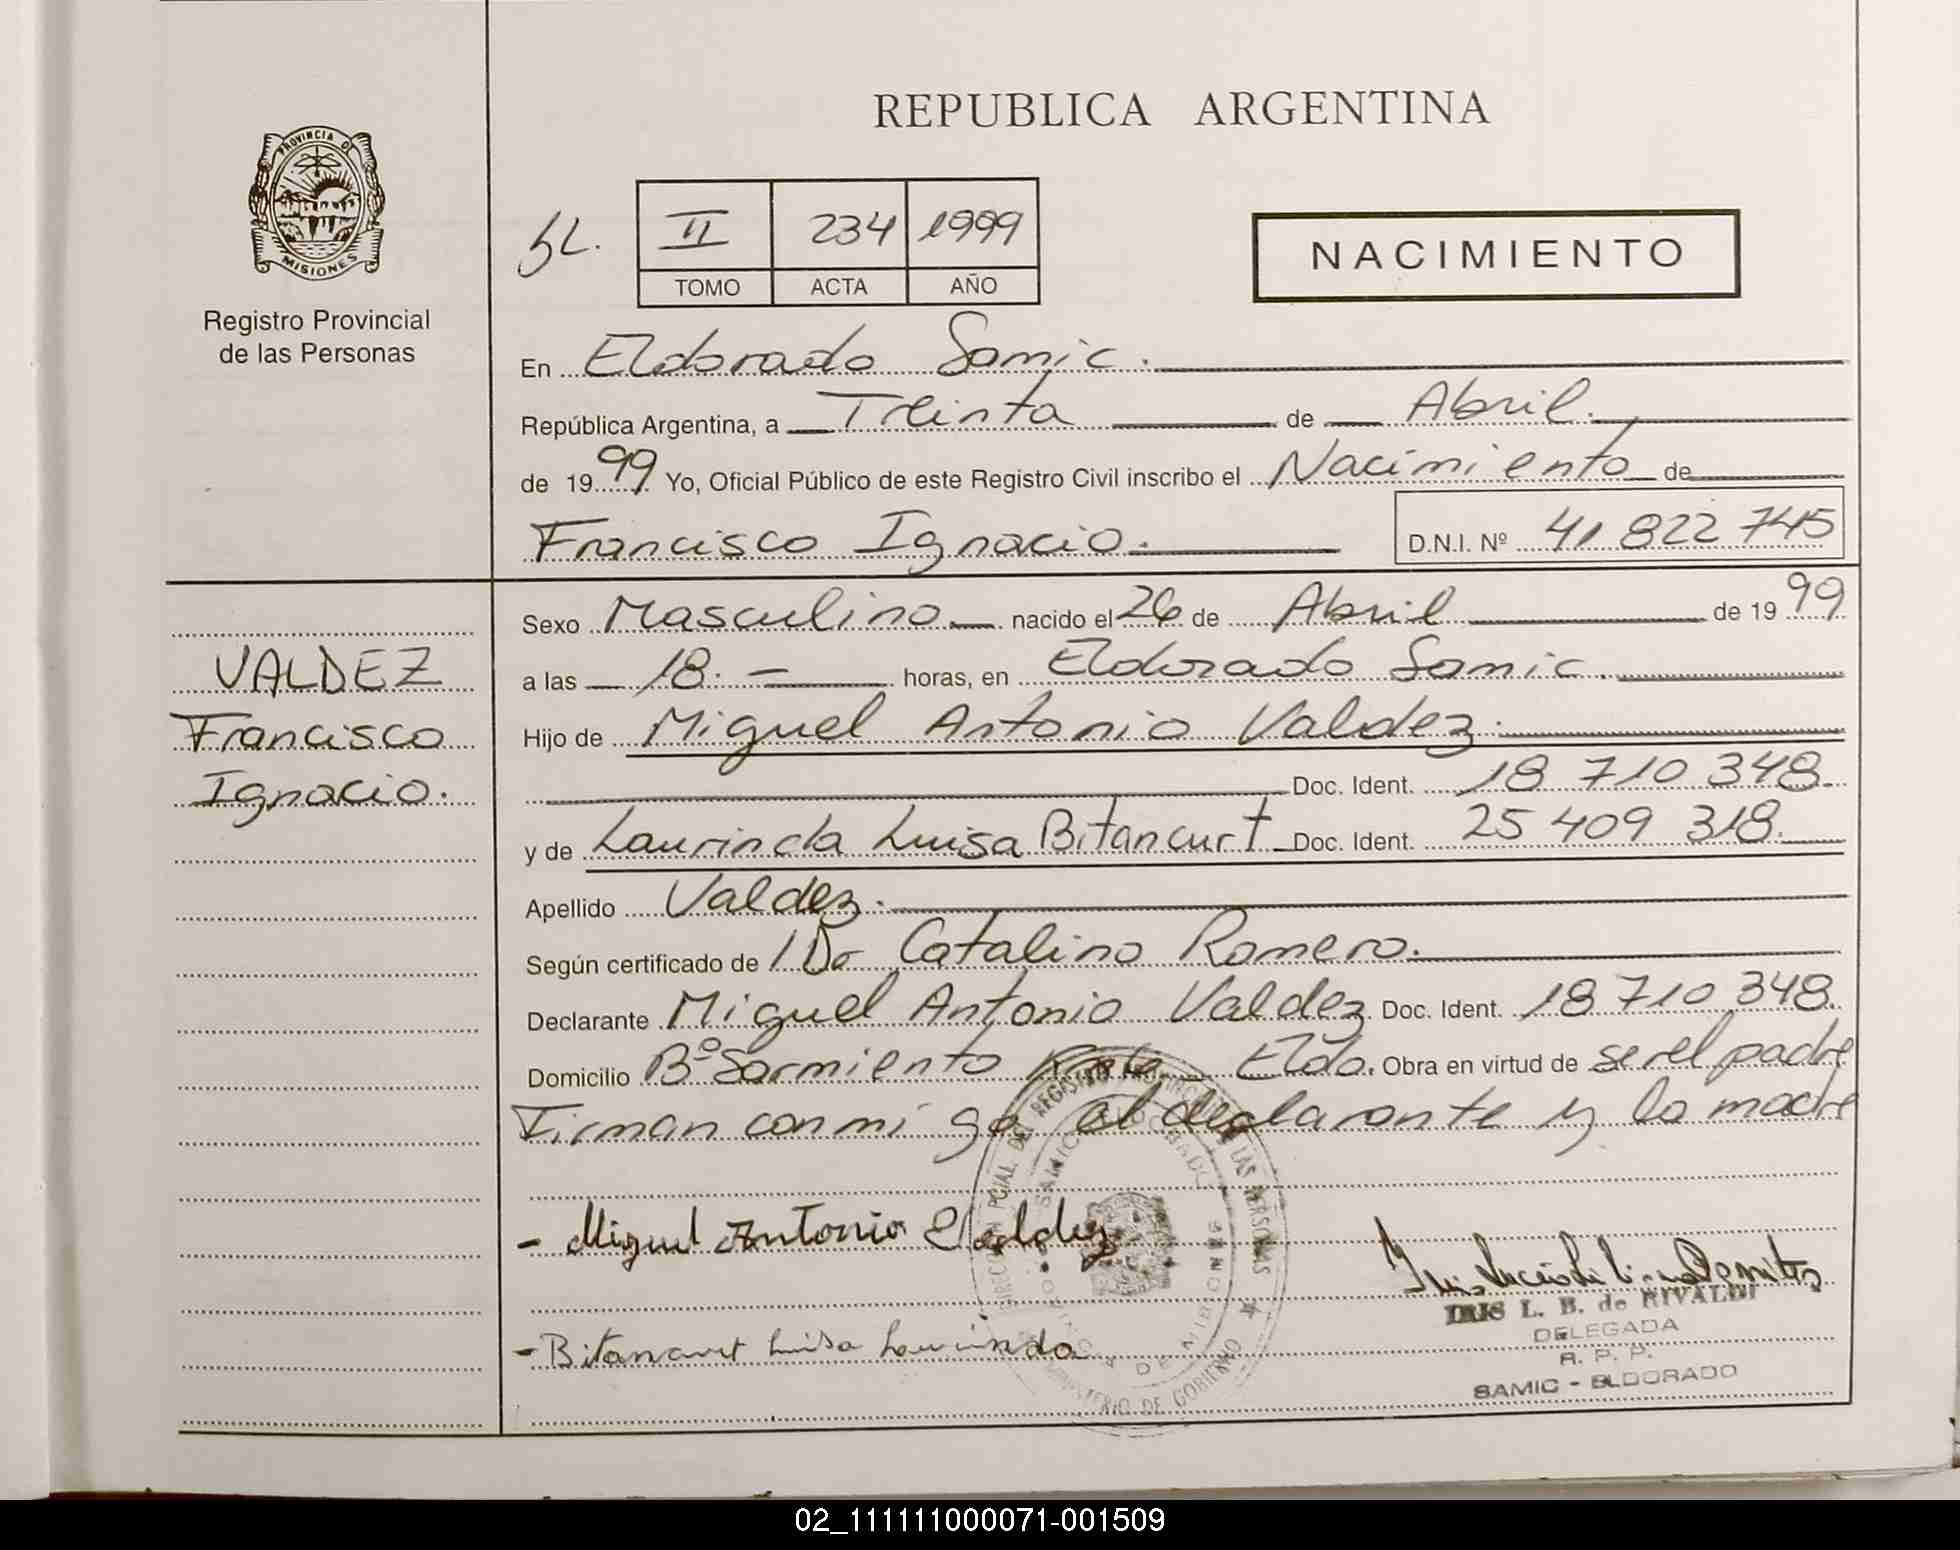 REPUBLICA ARGENTINA
PROVINCIA D
MISIONES
Registro Provincial
de las Personas
II 234 1999
TOMO ACTA AÑO
NACIMIENTO
En Eldorado Samic.
República Argentina, a Treinta de Abril.
de 1999 Yo, Oficial Público de este Registro Civil inscribo el Nacimiento de
Francisco Ignacio. D.N.I. Nº 41 822 745
VALDEZ
Francisco
Ignacio.
Sexo Masculino nacido el 26 de Abril de 1999
a las 18. - horas, en Eldorado Samic.
Hijo de Miguel Antonio Valdez.
Doc. Ident. 18 710 348.
y de Laurinda Luisa Bitancurt Doc. Ident. 25 409 318.
Apellido Valdez.
Según certificado de Dr Catalino Romero.
Declarante Miguel Antonio Valdez Doc. Ident. 18 710 348.
Domicilio Bº Sarmiento Eldo. Obra en virtud de ser el padre
Firman conmigo el declarante y la madre
- Miguel Antonio Valdez
- Bitancurt Luisa Laurinda
IRIS L. B. de RIVALDI
DELEGADA
R. P. P.
SAMIC - ELDORADO
MINISTERIO DE GOBIERNO
02_111111000071-001509